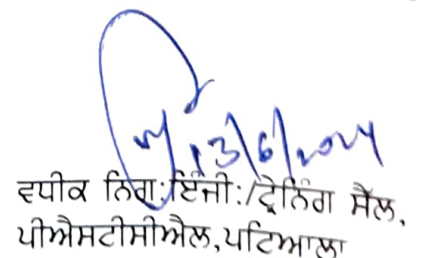 13/6/2024
ਵਧੀਕ ਨਿਗ:ਇੰਜੀ:/ਟ੍ਰੇਨਿੰਗ ਸੈੱਲ,
ਪੀਐਸਟੀਸੀਐਲ,ਪਟਿਆਲਾ